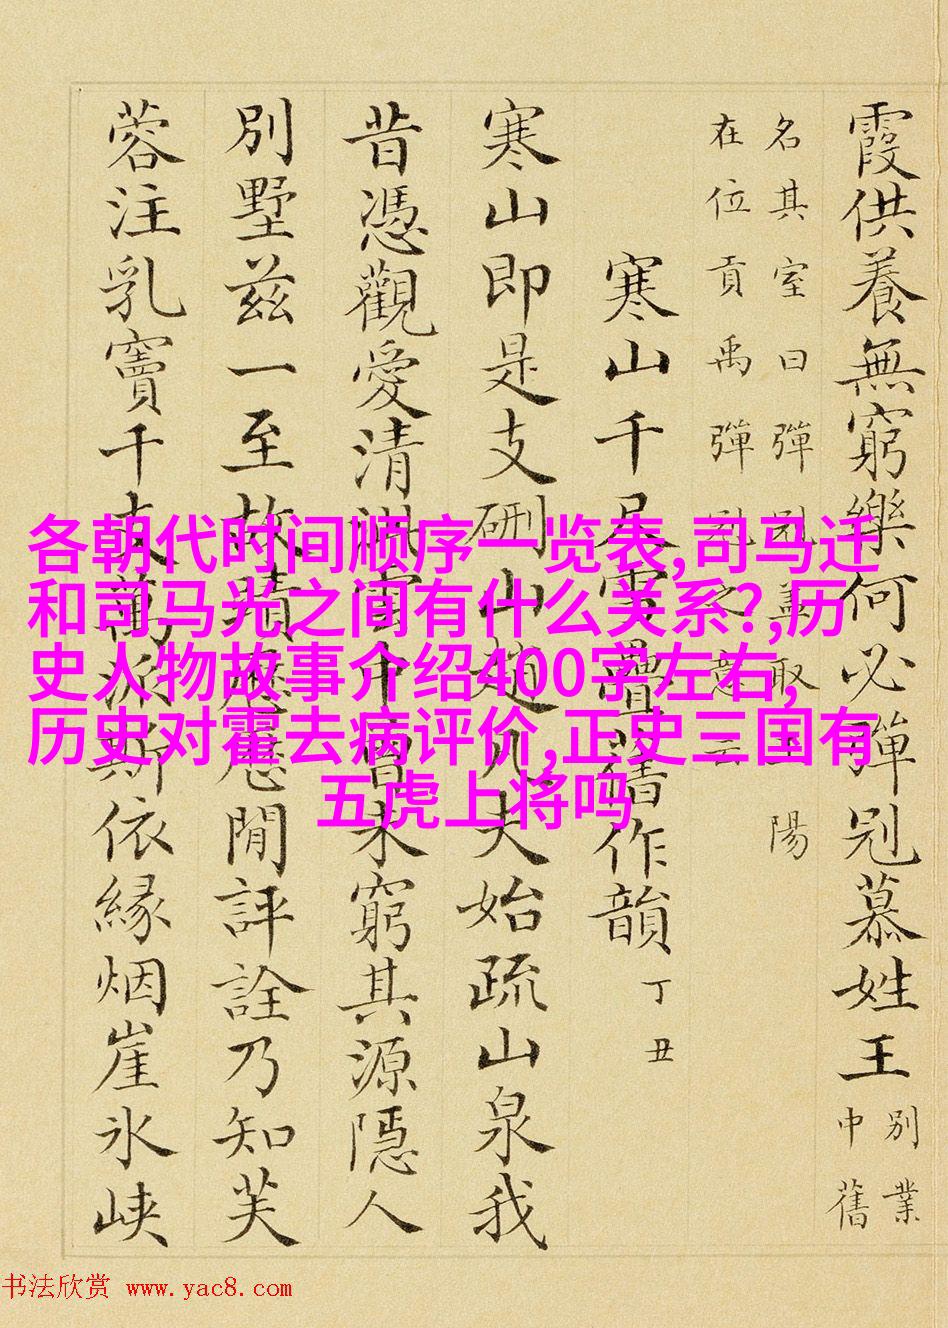 霞供養無窮樂何必彈冠慕姓王
別業
中舊
名其室曰彈冠盖取王陽
在位貢禹彈冠之意云
寒山千尺雪疊舊作韻 丁丑
寒山即是支硎山趙凡夫始疏山泉我
昔憑觀愛清 雲中曾未窮其源隱人
別墅兹一至故蹟 閒評詮乃知芙
蓉注乳竇千支萬派斯依緣烟崖氷峽
各朝代时间顺序一览表,司马迁
和司马光之间有什么关系?,历
史人物故事介绍400字左右,
历史对霍去病评价,正史三国有
五虎上将吗
书法欣赏 www.yac8.com